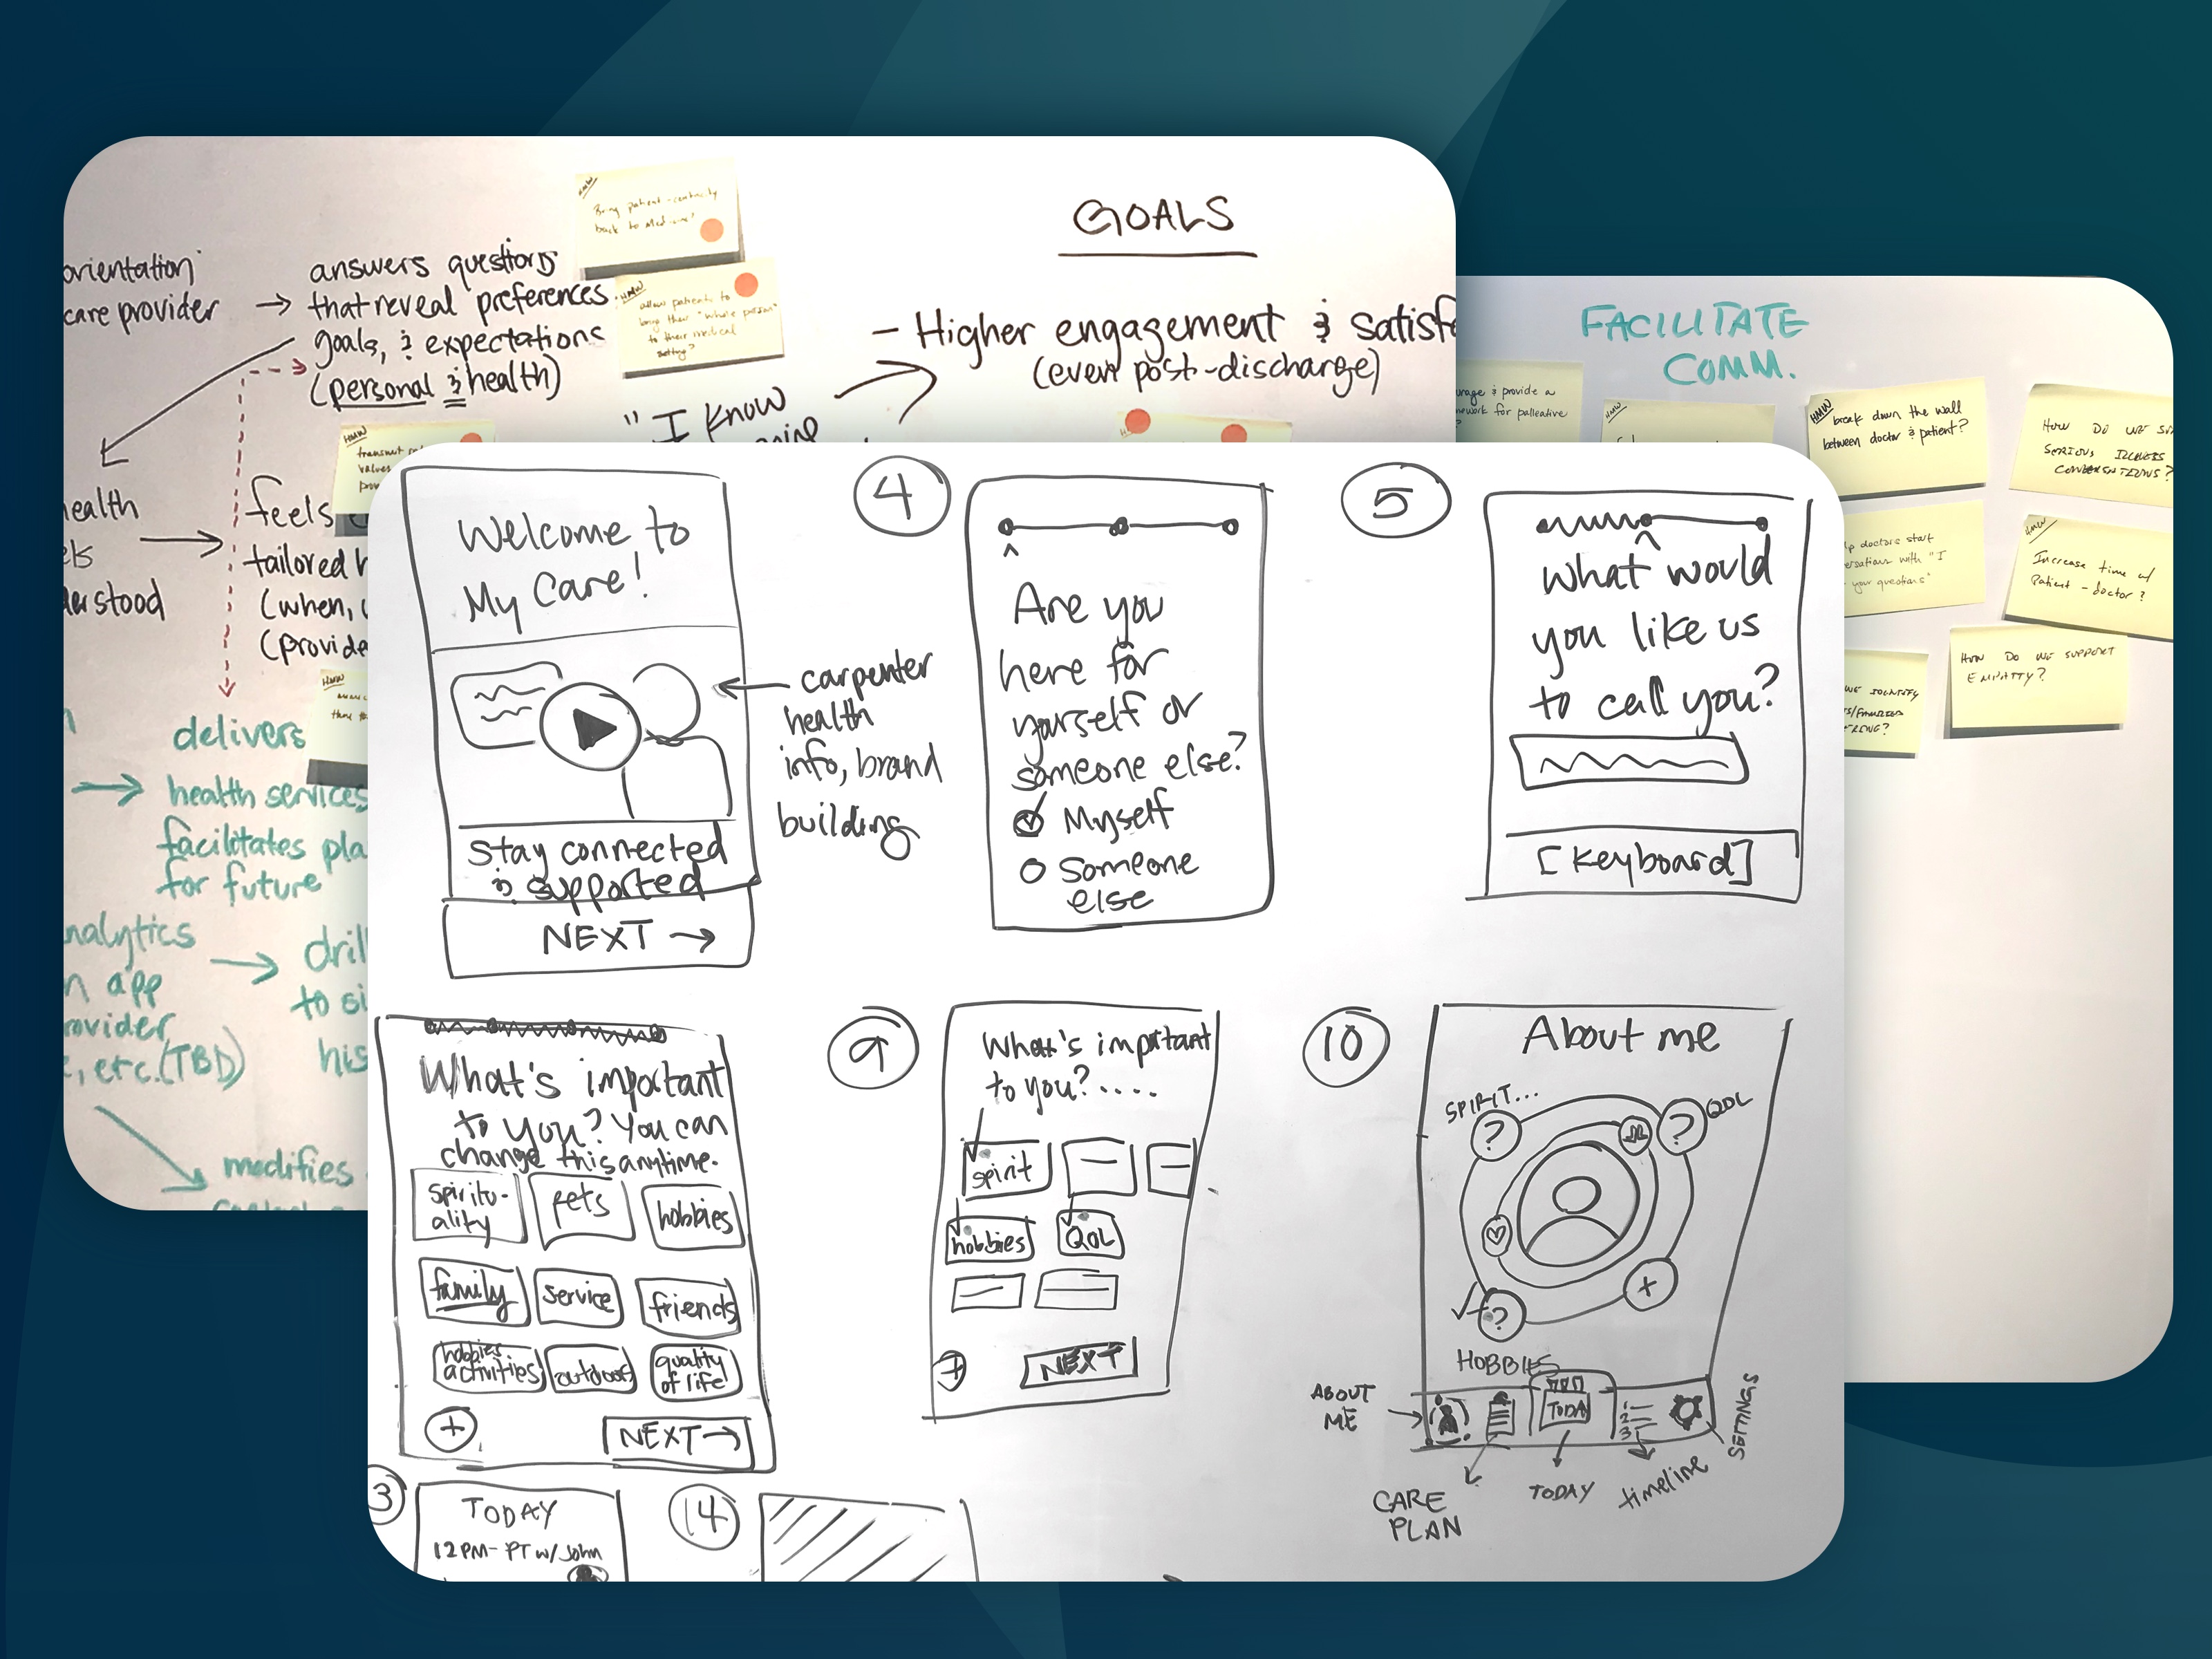 orientation
care provider
answers questions
that reveal preferences
goals, & expectations
(personal & health)
HMW
Bring patient-centricity
back to Medicine?
HMW
allow patients to
bring their "whole person"
to their medical
setting?
GOALS
- Higher engagement & satisf
(even post-discharge)
"I know
HMW
transmit
values
HMW
ealth
derstood
feels
tailored
(when,
(provide
HMW
delivers
health services
facilitates pla
for future
nalytics
n app
rovider
, etc. (TBD)
dril
to si
his
modifies
FACILITATE
COMM.
urage & provide a
ework for palleative
?
HMW
HMW
break down the wall
between doctor & patient?
HOW DO WE SU
SERIOUS ILLNESS
CONVERSATIONS?
lp doctors start
ersations with "I
your questions"
HMW
Increase time w/
Patient - doctor?
WE IDENTIFY
HOW DO WE SUPPORT
EMPATHY?
Welcome to
My Care!
carpenter
health
info, brand
building
stay connected
& supported
NEXT →
4
Are you
here for
yourself or
someone else?
Myself
Someone
else
5
what would
you like us
to call you?
[Keyboard]
What's important
to you? You can
change this anytime.
spiritu-
ality
pets
hobbies
family
service
friends
hobbies
activities
outdoors
quality
of life
+
NEXT →
9
What's important
to you?....
spirit
hobbies
QOL
+
NEXT
10
About me
SPIRIT...
?
?
QOL
+
?
HOBBIES
ABOUT
ME
TODAY
1
2
3
SETTINGS
CARE
PLAN
TODAY
timeline
3
TODAY
12PM- PT w/ John
14